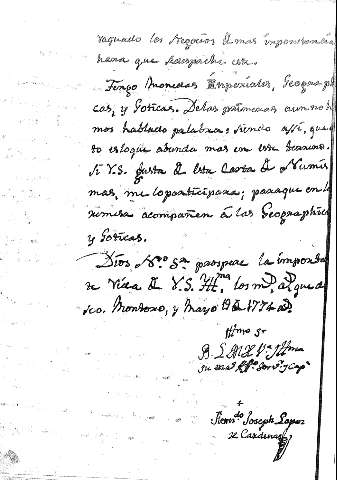 vaguado los Negocios de mas importancia
para que se despache esta.
Tengo Monedas Imperiales, Geographi
cas, y Goticas. De las primeras aun no he
mos hablado palabra: siendo assi, que es
to es lo que abunda mas en este terreno.
Si V.S. gusta de esta Carta de Numis
mas, me lo participara; para que en la
remesa acompañen á las Geographicas
y Goticas.
Dios Nro. Sr. prospere la importan
te Vida de V.S. Illma. los ms. as. que de
seo. Montoro, y Mayo 19 de 1774 as.
Illmo Sr
B. L. M. de V.S. Illma
su mas Afto Servr. y Capn
Ferndo Joseph Lopez
de Cardenas